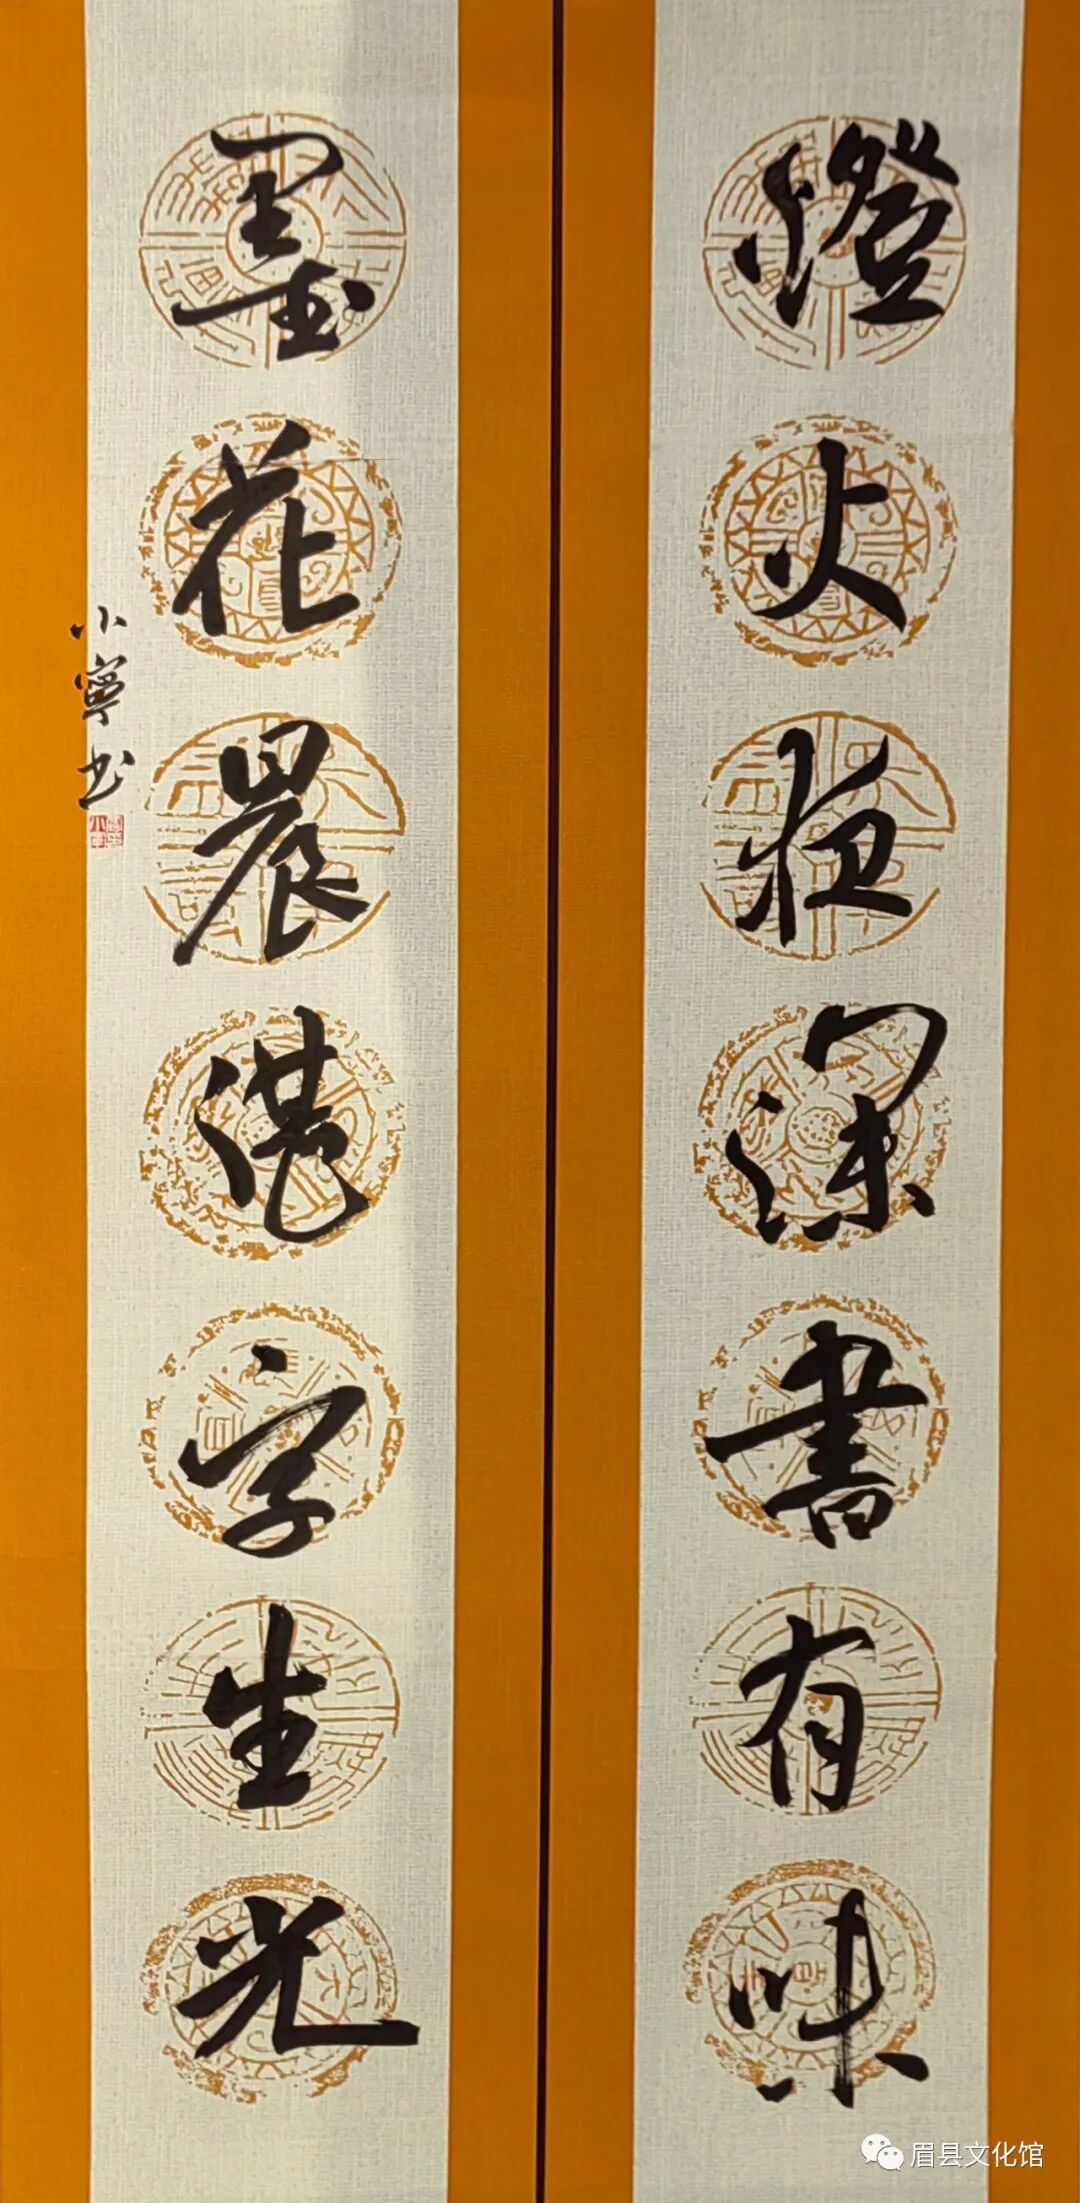 燈火夜深書有味
墨花晨湛字生光
小寧书
眉县文化馆